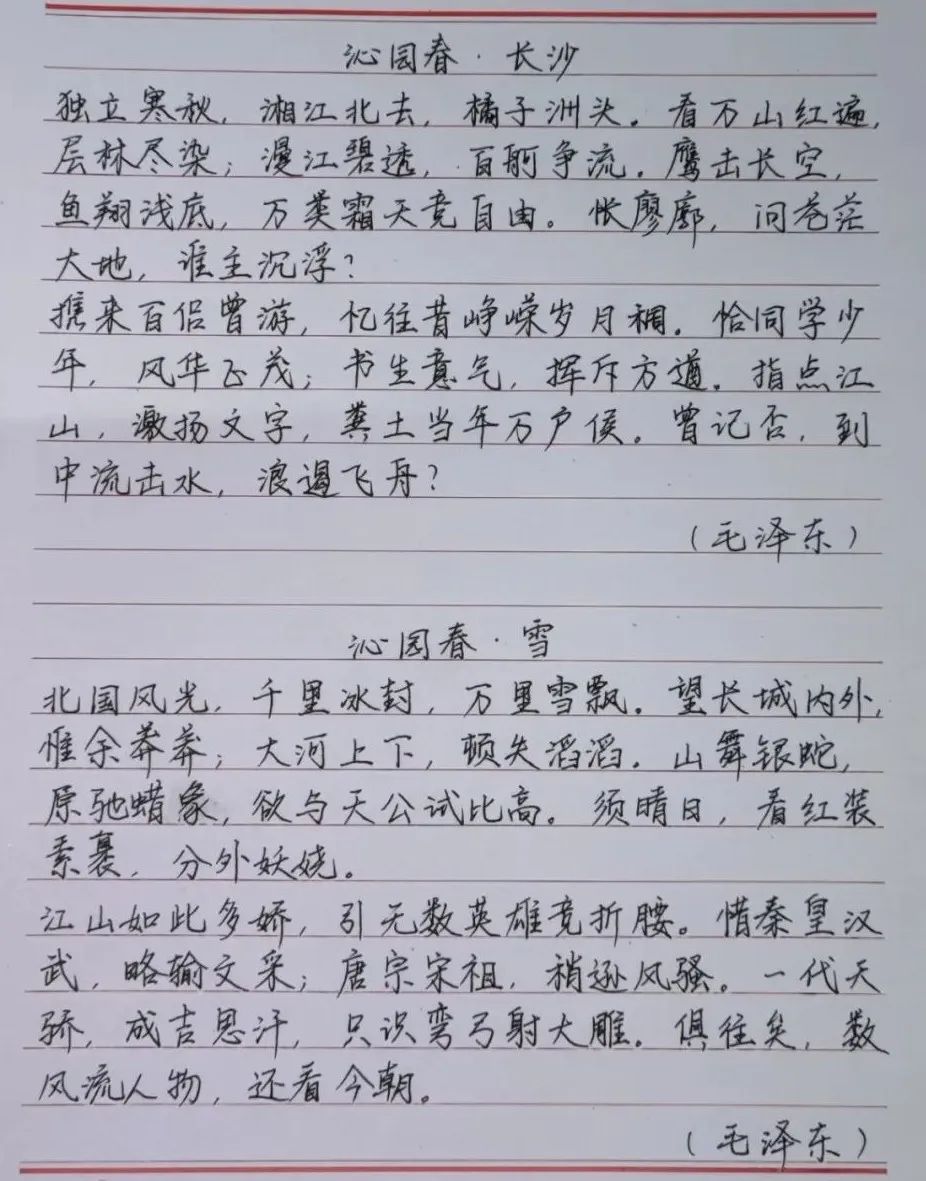 沁园春·长沙
独立寒秋，湘江北去，橘子洲头。看万山红遍，
层林尽染；漫江碧透，百舸争流。鹰击长空，
鱼翔浅底，万类霜天竞自由。怅廖廓，问苍茫
大地，谁主沉浮？
携来百侣曾游，忆往昔峥嵘岁月稠。恰同学少
年，风华正茂；书生意气，挥斥方遒。指点江
山，激扬文字，粪土当年万户侯。曾记否，到
中流击水，浪遏飞舟？
（毛泽东）
沁园春·雪
北国风光，千里冰封，万里雪飘。望长城内外，
惟余莽莽；大河上下，顿失滔滔。山舞银蛇，
原驰蜡象，欲与天公试比高。须晴日，看红装
素裹，分外妖娆。
江山如此多娇，引无数英雄竞折腰。惜秦皇汉
武，略输文采；唐宗宋祖，稍逊风骚。一代天
骄，成吉思汗，只识弯弓射大雕。俱往矣，数
风流人物，还看今朝。
（毛泽东）